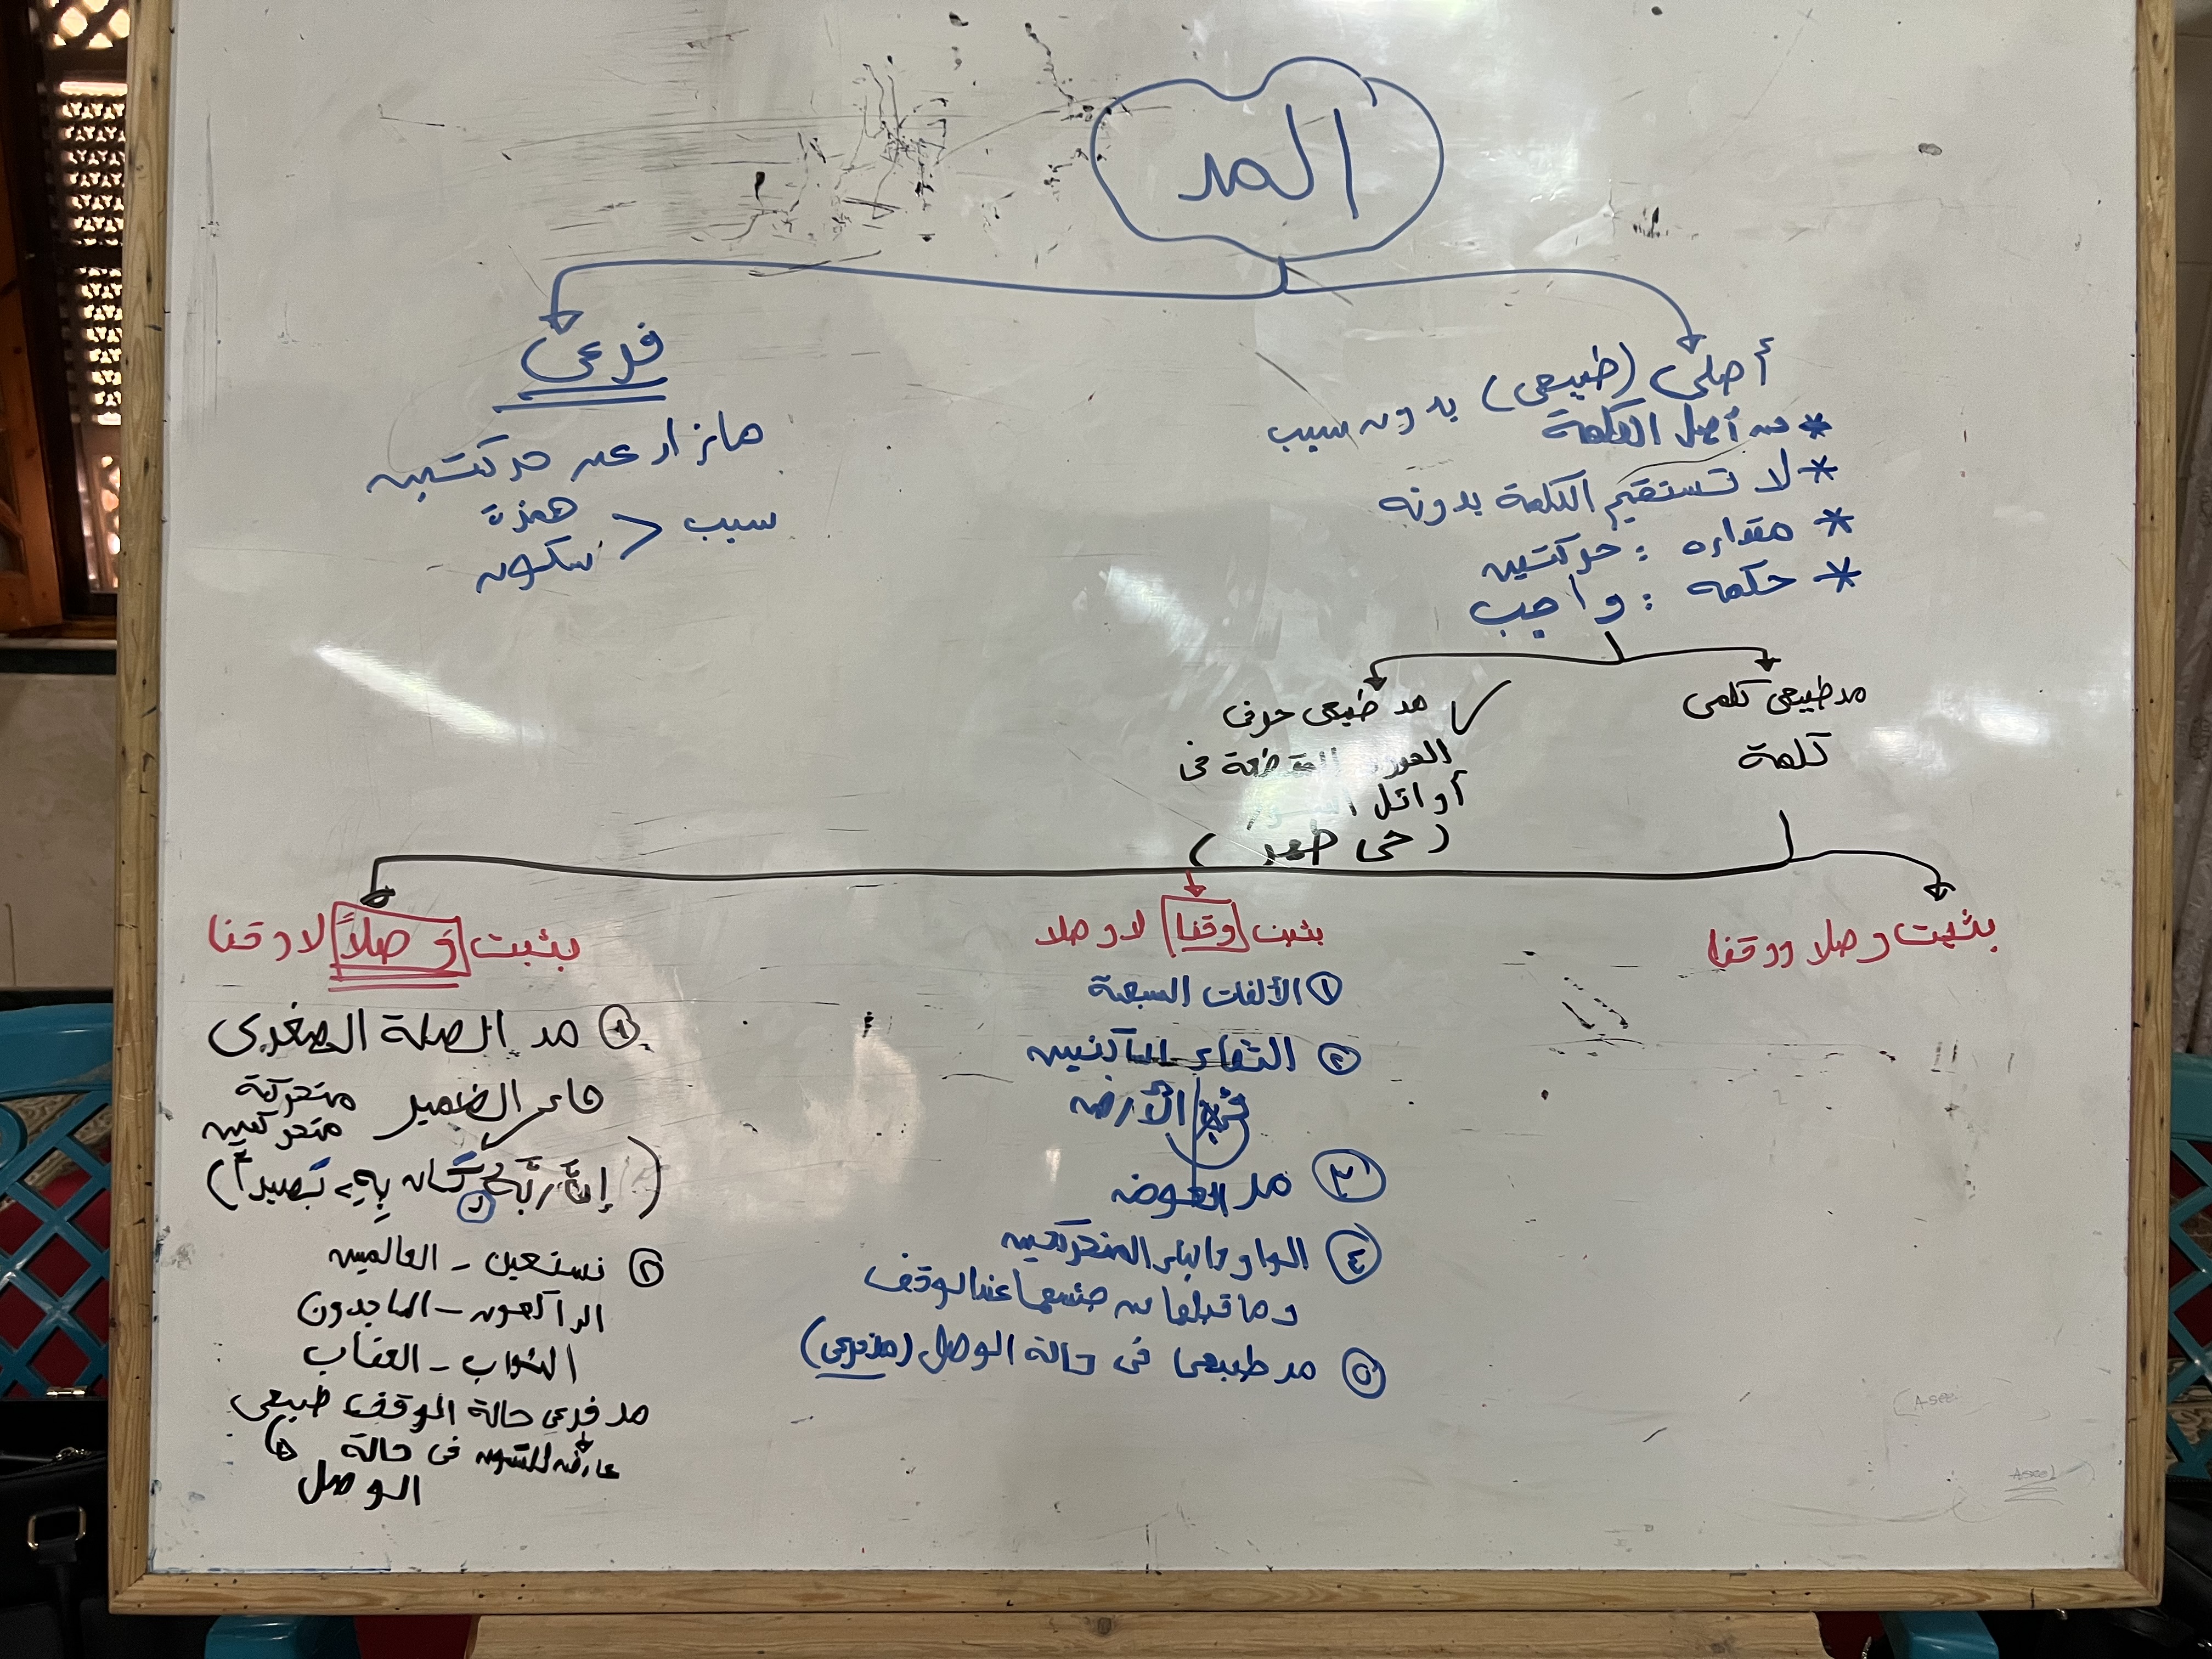 المد
أصلى (طبيعى) بدون سبب
* من أصل الكلمة
* لا تستقيم الكلمة بدونه
* مقداره : حركتين
* حكمه : واجب
فرعى
ما زاد عن حركتين
سبب < همزة
سكون
مد طبيعى كلمى
كلمة
مد طبيعى حرفى
المقطعة فى
أوائل السور
(حى طهر)
يثبت وصلا ووقفا
يثبت وقفا لا وصلا
① الألفات السبعة
② التقاء الساكنين
فى الأرض
③ مد العوض
④ الواو والياء المتحركتين
وما قبلها من جنسهما عند الوقف
⑤ مد طبيعى فى حالة الوصل (مد فرعى)
يثبت وصلاً لا وقفا
① مد الصلة الصغرى
هاء الضمير متحركة
متحركين
(إنَّ رَبَّهُ كَان بِهِ بَصيراً)
و
② نستعين - العالمين
الراكعون - الساجدون
الثواب - العقاب
مد فرعى حالة الوقف طبيعى
عارض للسكون فى حالة
الوصل
Aseel
Aseel